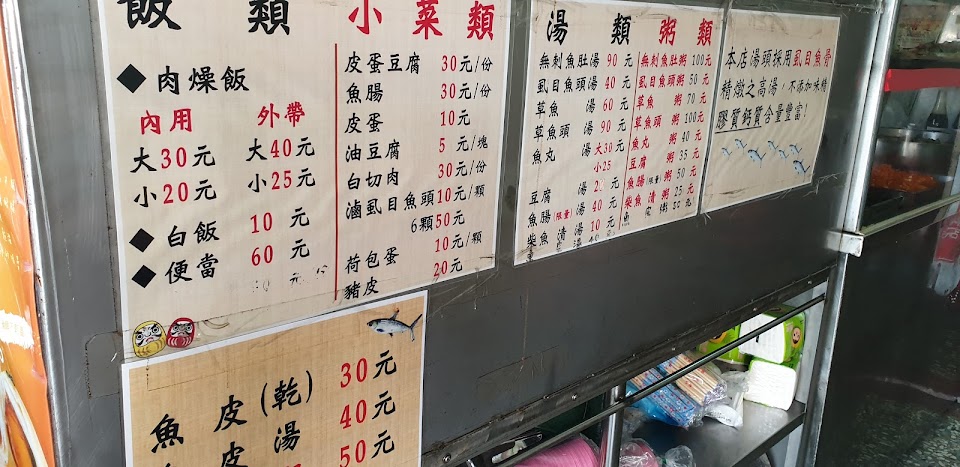 飯 類
◆肉燥飯
內用 外帶
大30元 大40元
小20元 小25元
◆白飯 10元
◆便當 60元
小菜類
皮蛋豆腐 30元/份
魚腸 30元/份
皮蛋 10元
油豆腐 5元/塊
白切肉 30元/份
滷虱目魚頭10元/顆
6顆50元
荷包蛋 10元/顆
豬皮 20元
湯 類
無刺魚肚湯 90元
虱目魚頭湯 40元
草魚 湯 60元
草魚頭 湯 90元
魚丸 湯 大30元
小25
豆腐 湯 元
魚腸(限量)湯 40元
柴魚清湯 10元
粥 類
無刺魚肚粥 100元
虱目魚頭粥 50元
草魚 粥 70元
草魚頭 粥 100元
魚丸 粥 40元
豆腐 粥 35元
魚腸(限量)粥 50元
柴魚清粥 25元
魚 粥 元
本店湯頭採用虱目魚骨
精燉之高湯,不添加味精
膠質鈣質含量豐富!
魚皮(乾) 30元
皮湯 40元
50元